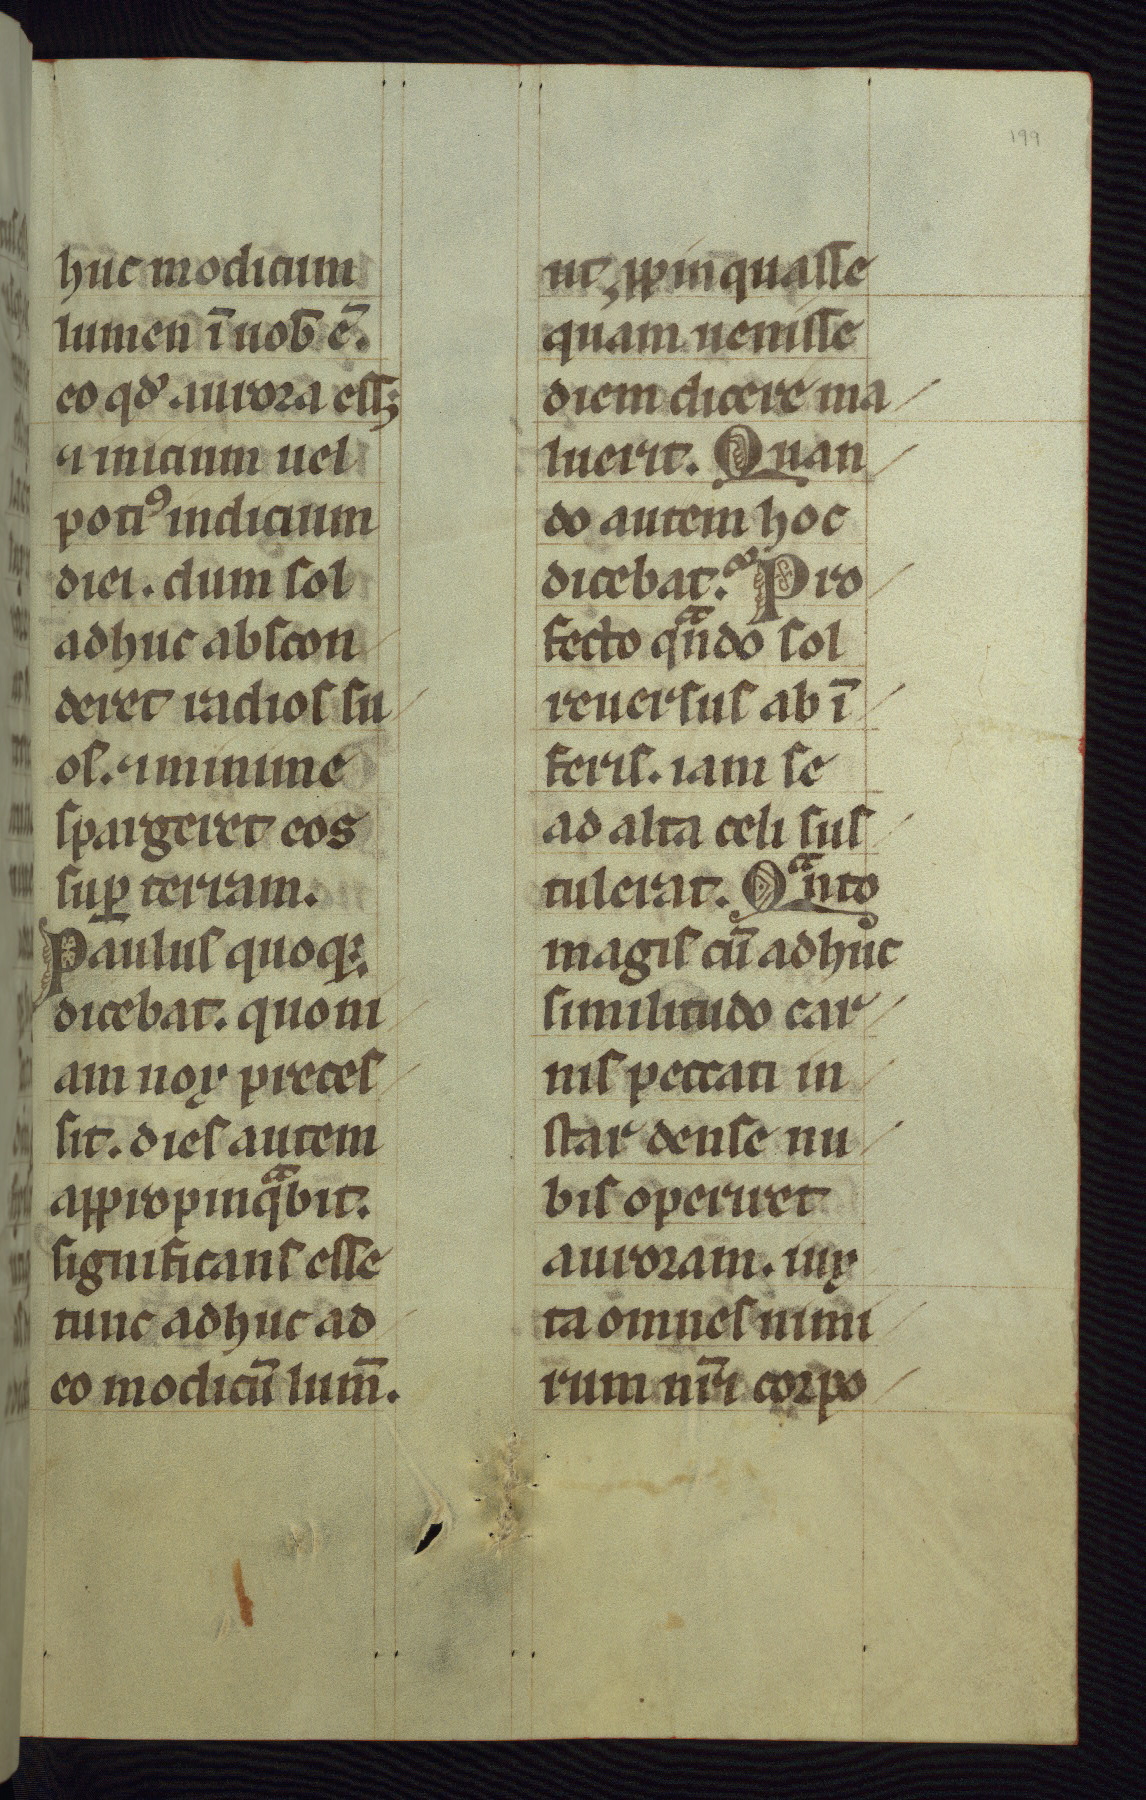 199
huc modicum
lumen ī nob̄ ē.
eo qd' aurora ess;
⁊ inicium uel
poti᷒ indicium
diei. dum sol
adhuc abscon
deret radios su
os. ⁊ minime
spargeret eos
suꝑ terram.
Paulus quoqꝫ
dicebat. quoni
am nox preces
sit. dies autem
appropinqᵃbit.
significans esse
tunc adhuc ad
eo modicū lum̄.
ut ꝓpinquasse
quam uenisse
diem dicere ma
luerit. Quan
do autem hoc
dicebat. Pro
fecto qᵃndo sol
reuersus ab ī
feris. iam se
ad alta celi sus
tulerat. Qᵃnto
magis cū adhuc
similitudo car
nis peccati in
star dense nu
bis operiret
auroram. iux
ta omnes nimi
rum nr̄i corpo